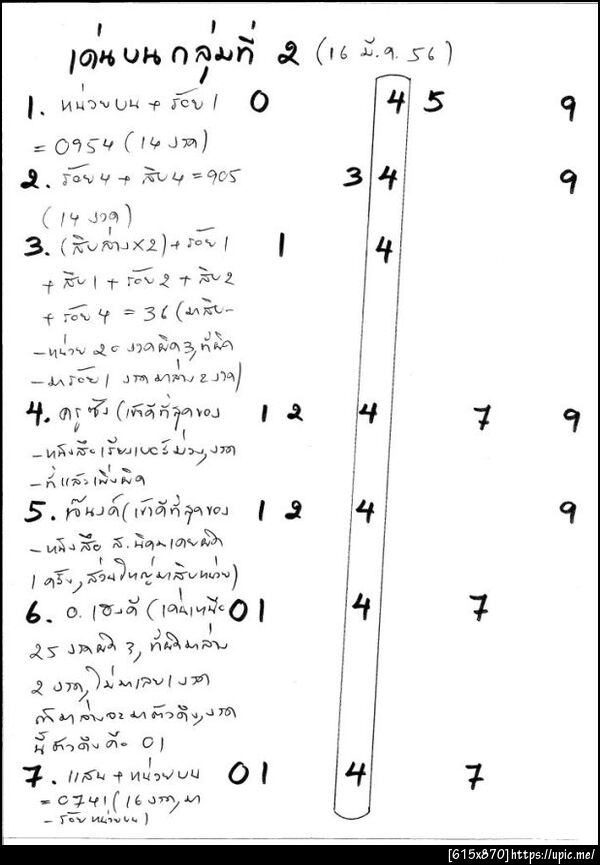 เด่นบนกลุ่มที่ 2 (16 มี.ค. 56)
1. หน่วยบน + ร้อย 1 0 4 5 9
= 0954 (14 งวด)
2. ร้อย 4 + สิบ 4 = 905 3 4 9
(14 งวด)
3. (สิบล่าง×2) + ร้อย 1 1 4
+ สิบ 1 + ร้อย 2 + สิบ 2
+ ร้อย 4 = 36 (มาสิบ-
-หน่วย 20 งวดผิด 3, ที่ผิด
-มาร้อย 1 งวด มาล่าง 2 งวด)
4. ครูซัง (เข้าดีที่สุดของ 1 2 4 7 9
-หนังสือเรียงเบอร์ม่วง, งวด
-ที่แล้วเพิ่งผิด
5. (เข้าดีที่สุดของ 1 2 4 9
-หนังสือ ส. เคยผิด
1 ครั้ง, ส่วนใหญ่มาสิบหน่วย)
6. อ. เฮงดี (เด่น 01 4 7
25 งวดผิด 3, ที่ผิดมาล่าง
2 งวด, ไม่มาเลย 1 งวด
มาล่างจะมาตัวดึง, งวด
นี้ ตัวดึงคือ 01
7. แสน + หน่วยบน 01 4 7
= 0741 (16 งวด, มา
- ร้อยหน่วยบน)
[615x870]https://upic.me/